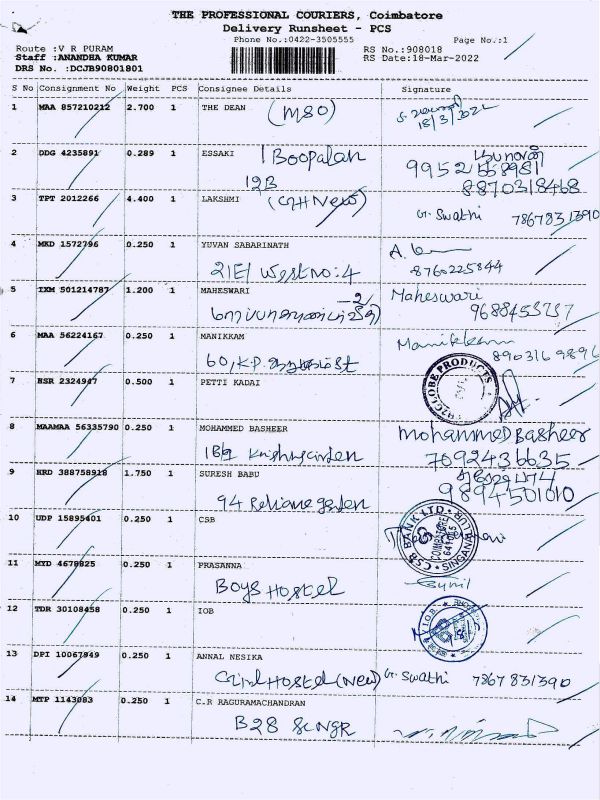 THE PROFESSIONAL COURIERS, Coimbatore
Delivery Runsheet - PCS
Phone No.:0422-3505555 Page No.:1
Route :V R PURAM RS No.:908018
Staff :ANANDHA KUMAR RS Date:18-Mar-2022
DRS No. :DCJB90801801
S No Consignment No Weight PCS Consignee Details Signature
1 MAA 857210212 2.700 1 THE DEAN (MSO)
18/3/2022
2 DDG 4235891 0.289 1 ESSAKI 1 Boopalan
12B 9952668981
8870318468
3 TPT 2012266 4.400 1 LAKSHMI (GH New) G. Swathi 7867831390
4 MKD 1572796 0.250 1 YUVAN SABARINATH
21E1 West No: 4 8760225844
5 IXM 501214787 1.200 1 MAHESWARI Maheswari
9688453737
6 MAA 56224167 0.250 1 MANIKKAM Manikkam
60, K.P. 8903169896
7 HSR 2324947 0.500 1 PETTI KADAI GLOBE PRODUCTS
8 MAAMAA 56335790 0.250 1 MOHAMMED BASHEER Mohammed Basheer
7092436635
9 HRD 388758918 1.750 1 SURESH BABU
94 Reliance garden 9894501010
10 UDP 15895401 0.250 1 CSB CSB BANK LTD. SINGANALLUR COIMBATORE
11 MYD 4679825 0.250 1 PRASANNA
Boys Hostel Sunil
12 TDR 30108458 0.250 1 IOB IOB
13 DPI 10067949 0.250 1 ANNAL NESIKA
Girl Hostel (New) G. Swathi 7867831390
14 MTP 1143083 0.250 1 C.R RAGURAMACHANDRAN
B28 SCNGR